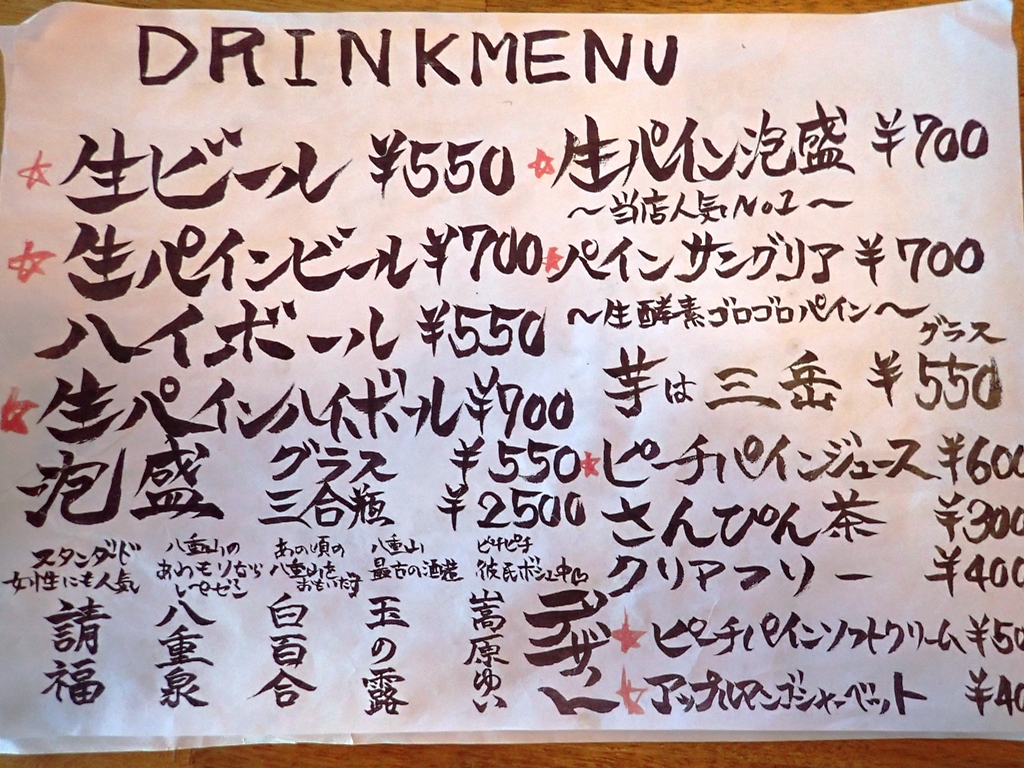 DRINKMENU
☆生ビール ¥550
☆生パインビール ¥700
ハイボール ¥550
☆生パインハイボール ¥700
泡盛 グラス ¥550
三合瓶 ¥2500
スタンダード
女性にも人気
請福
八重山の
あわもりなら
八重泉
あの頃の
八重山を
おもいだす
白百合
八重山
最古の酒造
玉の露
ピチピチ
彼氏ボシュ中
嵩原ゆい
☆生パイン泡盛 ¥700
～当店人気No1～
☆パインサングリア ¥700
～生酵素ゴロゴロパイン～
グラス
芋は三岳 ¥550
☆ピーチパインジュース ¥600
さんぴん茶 ¥300
クリアフリー ¥400
デザート
☆ピーチパインソフトクリーム ¥50
☆アップルマンゴシャーベット ¥40